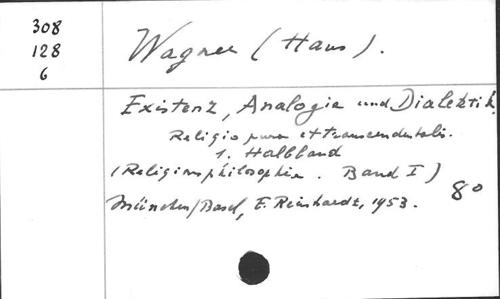 308
128
6
Wagner (Hans).
Existenz, Analogie und Dialektik.
Religio pura et transcendentalis.
1. Halbband
(Religionsphilosophie. Band I)
8°
München/Basel, E. Reinhardt, 1953.